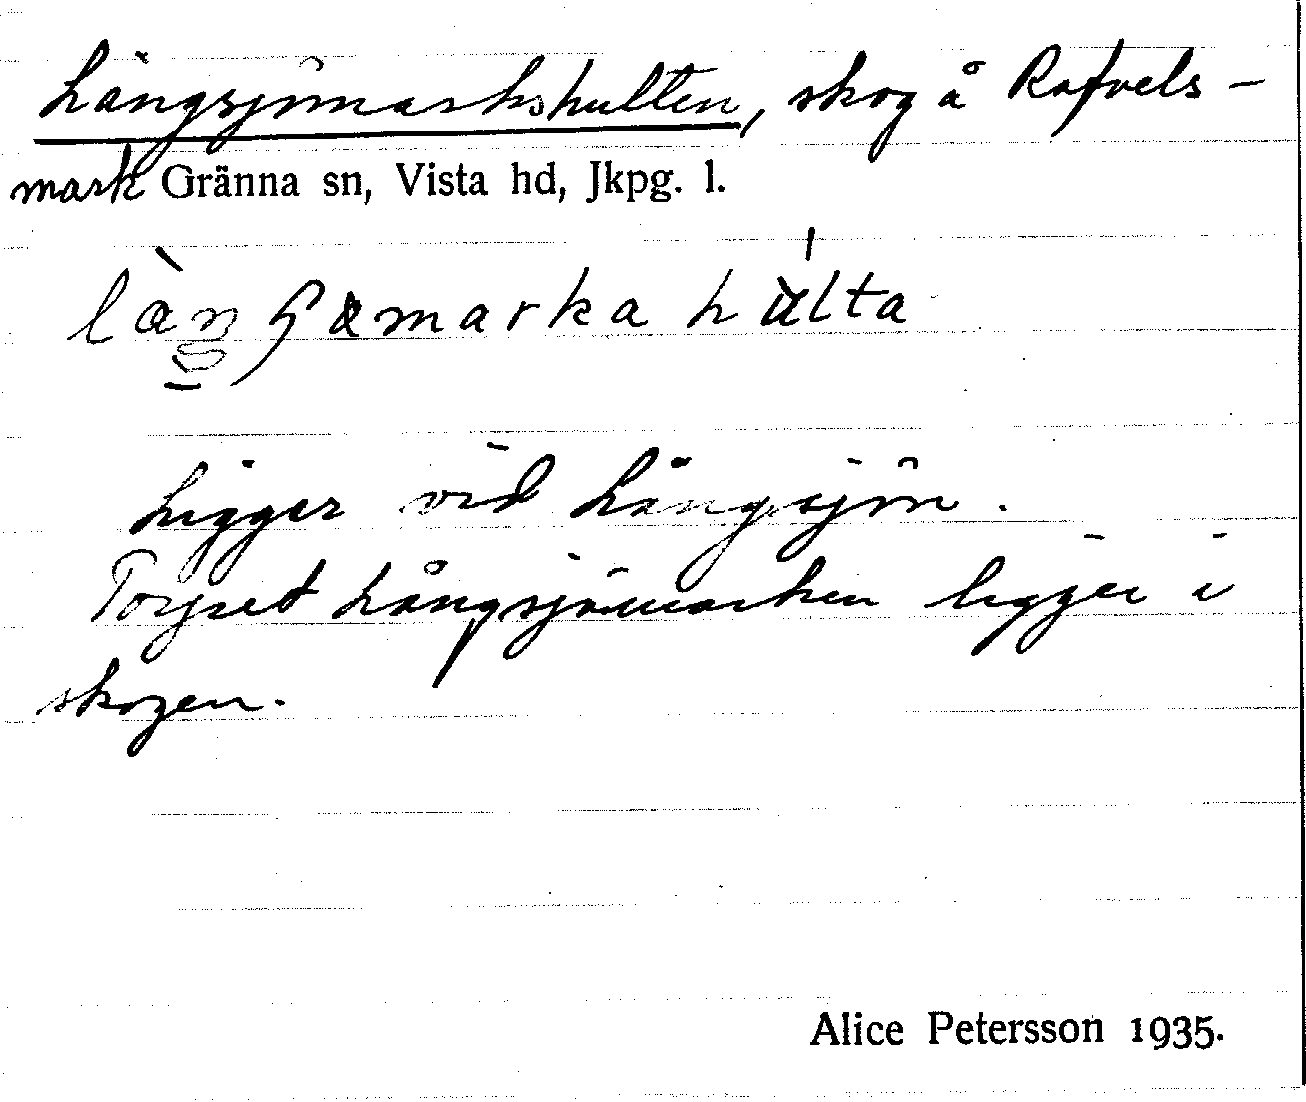 Långsjömarkshulten, skog å Rafvels-
mark Gränna sn, Vista hd, Jkpg. l.
Ligger vid Långsjön.
Torpet Långsjömarken ligger i
skogen.
Alice Petersson 1935.